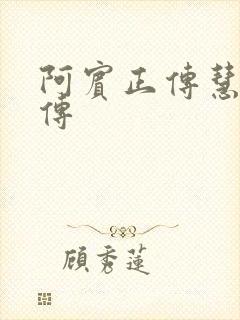 阿賓正傳慧
傳
顧秀蓮